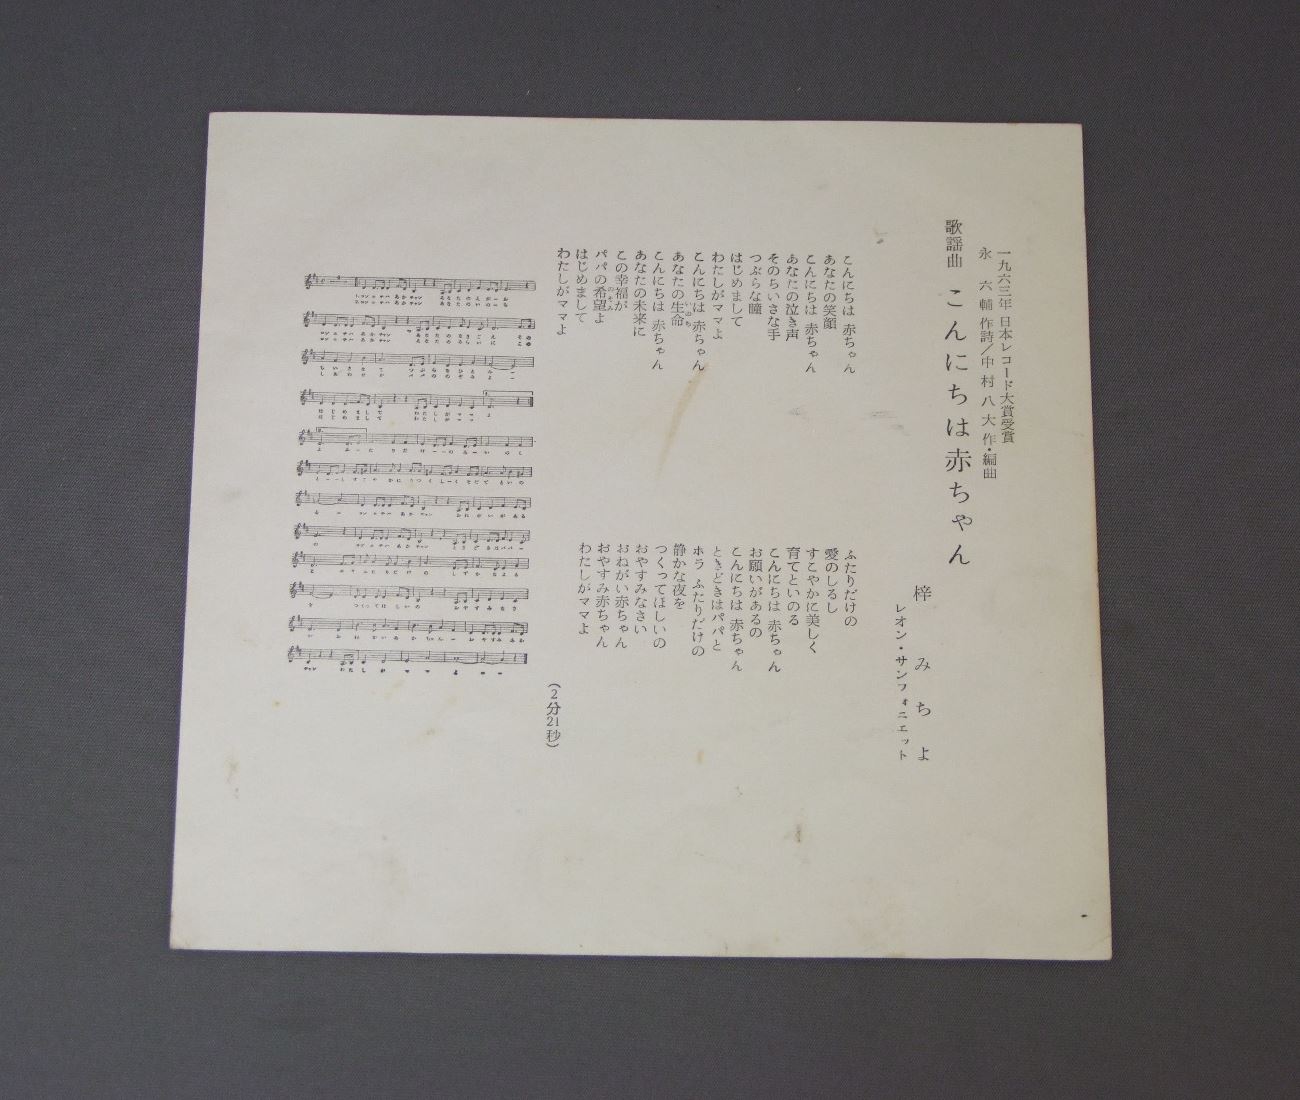 一九六三年 日本レコード大賞受賞
永六輔 作詩/中村八大 作・編曲
歌謡曲 こんにちは赤ちゃん
梓みちよ
レオン・サンフォニエット
こんにちは 赤ちゃん
あなたの笑顔
こんにちは 赤ちゃん
あなたの泣き声
そのちいさな手
つぶらな瞳
はじめまして
わたしがママよ
こんにちは 赤ちゃん
あなたの生命
いのち
こんにちは 赤ちゃん
あなたの未来に
この幸福が
パパの希望よ
のぞみ
はじめまして
わたしがママよ
ふたりだけの
愛のしるし
すこやかに美しく
育てといのる
こんにちは 赤ちゃん
お願いがあるの
こんにちは 赤ちゃん
ときどきはパパと
ホラ ふたりだけの
静かな夜を
つくってほしいの
おやすみなさい
おねがい赤ちゃん
おやすみ赤ちゃん
わたしがママよ
(2分21秒)